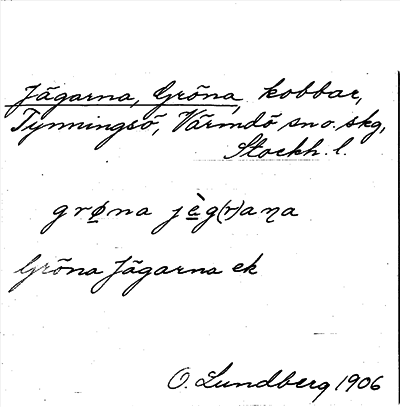 Jägarna, Gröna, kobbar,
Tynningsö, Värmdö sn o. skg,
Stockh. l.
grø̱na jè̱g(r)aṇa
Gröna Jägarna ek
O. Lundberg 1906